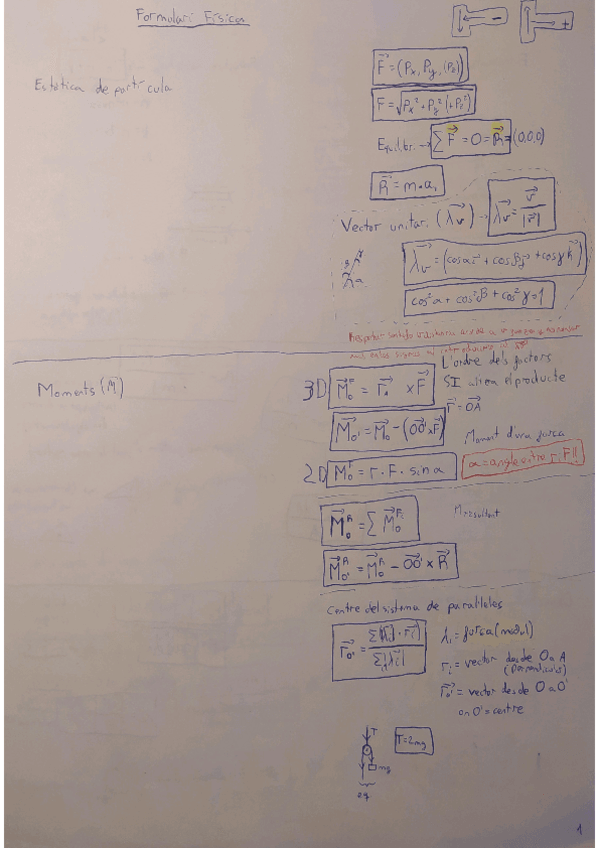 Formulari Física
Estàtica de partícula
F⃗ = (Px, Py, (Pz))
F = √Px² + Py² (+Pz²)
Equilibri → ∑F⃗ = 0 = R⃗ = (0,0,0)
R⃗ = m·a,
Vector unitari (λv⃗) → λv⃗ = v⃗/|v⃗|
λv⃗ = (cosα i⃗ + cosβ j⃗ + cosγ k⃗)
cos²α + cos²β + cos²γ = 1
Moments (M⃗)
L'ordre dels factors
SI altera el producte
3D M⃗₀ᶠ = r⃗ₐ × F⃗
r⃗ = OA
M⃗₀' = M⃗₀ - (OO⃗' × F⃗)
Moment d'una força
2D M₀ᶠ = r · F · sin α
α = angle entre r i F!!
M⃗₀ᴿ = ∑ M⃗₀ᶠⁱ
M resultant
M⃗₀'ᴿ = M⃗₀ᴿ - OO⃗' × R⃗
Centre del sistema de paral·leles
r⃗₀' = ∑(|λi| · r⃗i) / ∑|λ⃗i|
λi = força (mòdul)
ri = vector desde O a A
r⃗₀' = vector desde O a O'
on O' = centre
T
T = 2mg
mg
1